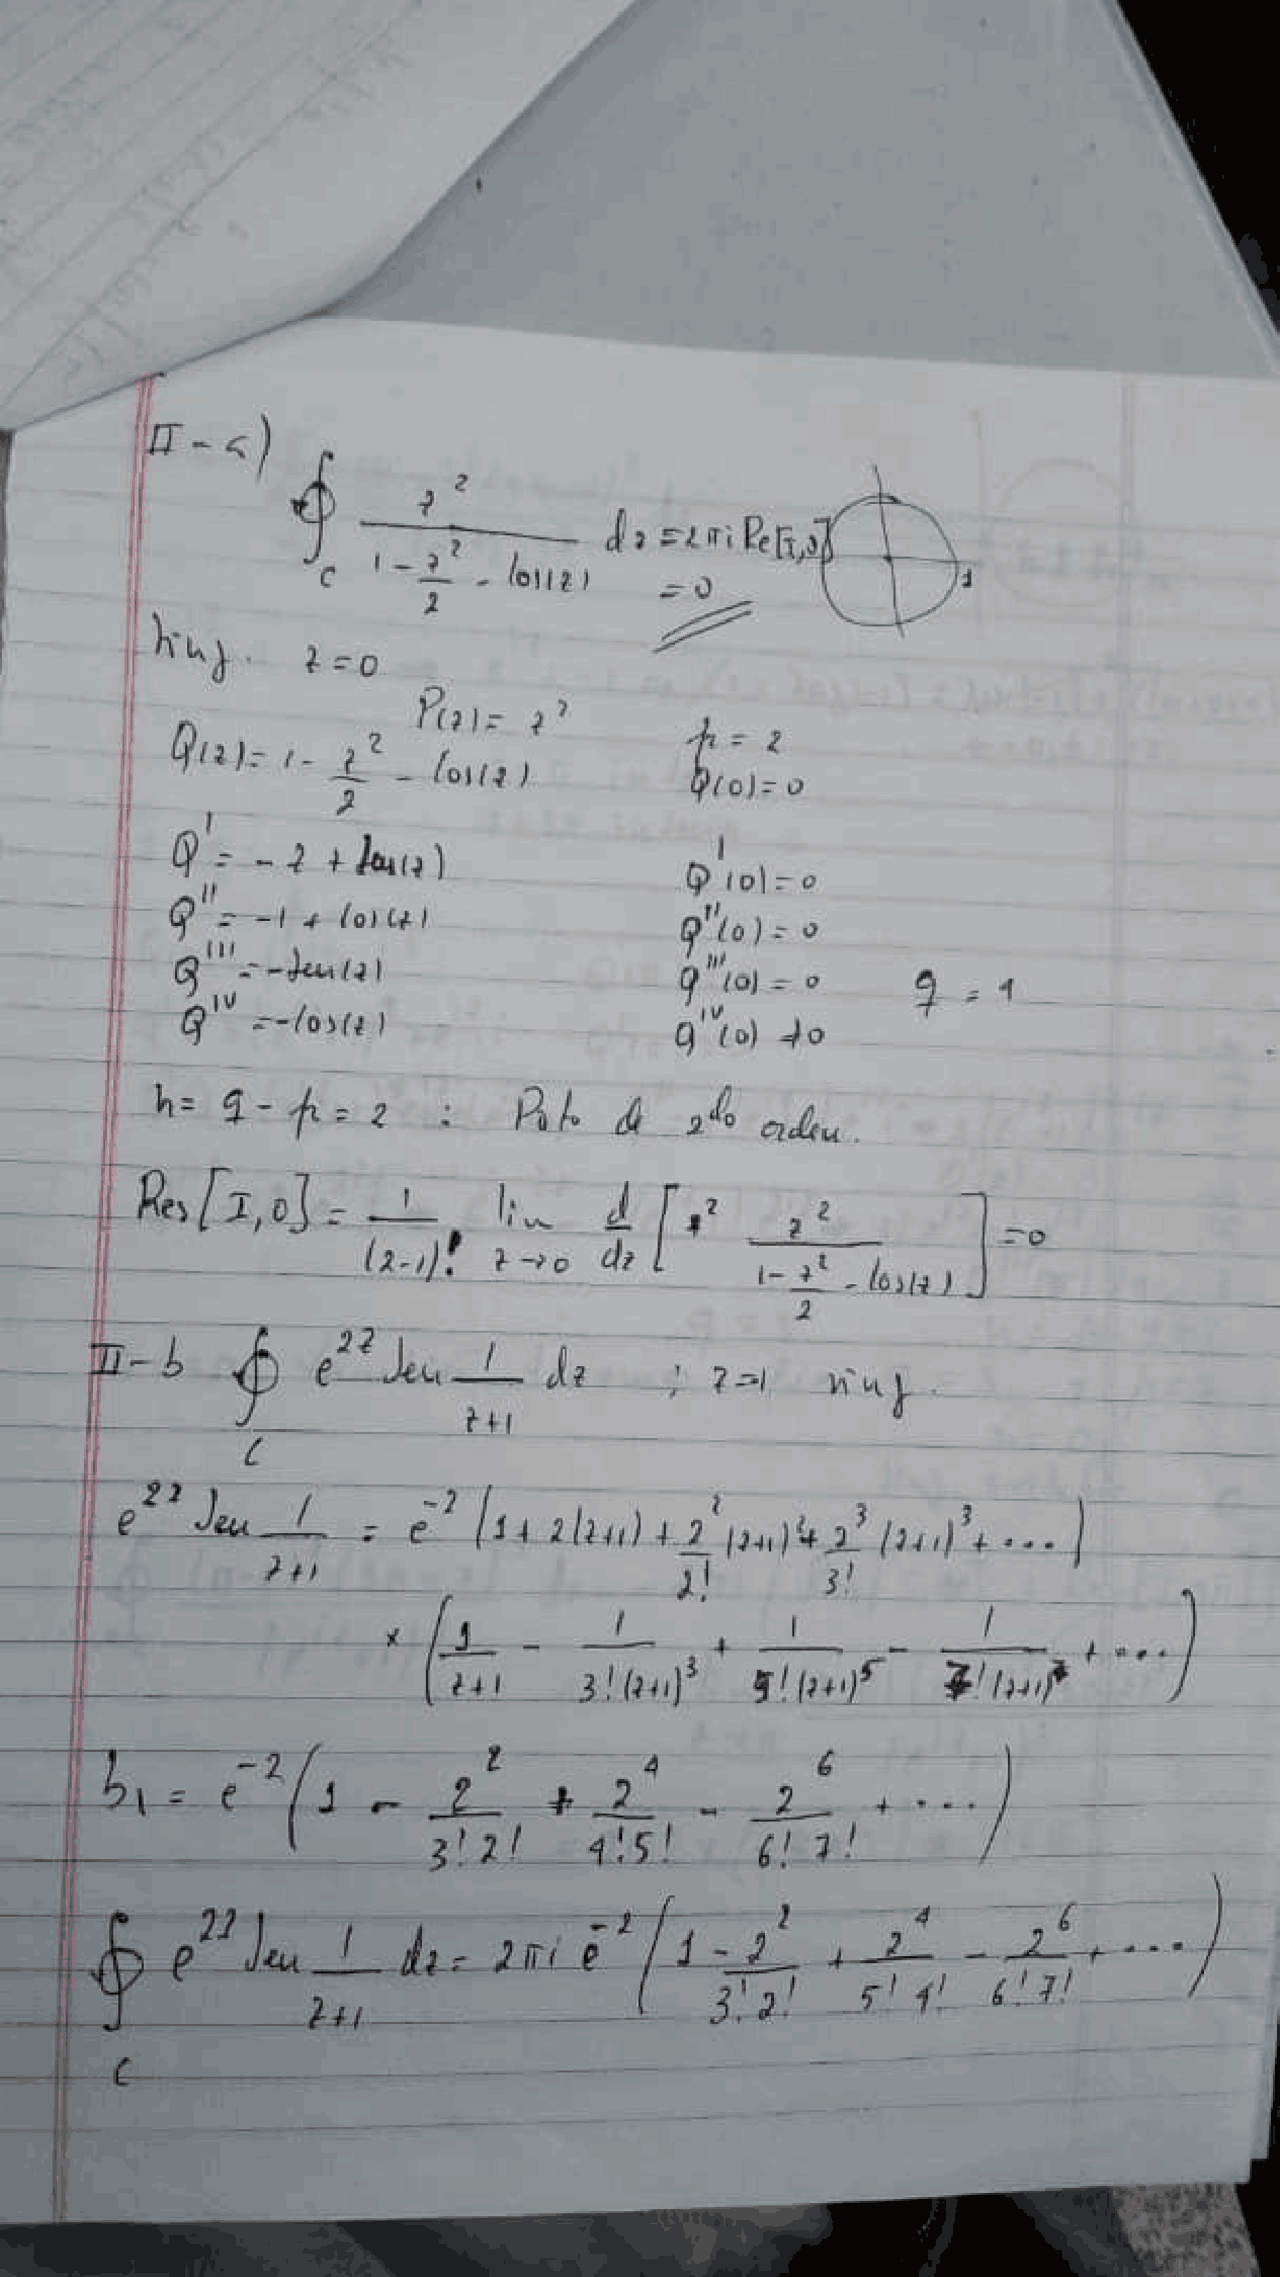 II-a)
∮_C z² / (1 - z²/2 - cos(z)) dz = 2πi Re[I,0] = 0
1
sing. z=0
P(z) = z² p = 2
Q(z) = 1 - z²/2 - cos(z) Q(0) = 0
Q' = -z + sen(z) Q'(0) = 0
Q'' = -1 + cos(z) Q''(0) = 0
Q''' = -sen(z) Q'''(0) = 0 q = 4
Q^IV = -cos(z) Q^IV(0) ≠ 0
n = q - p = 2 : Polo de 2do orden.
Res[I,0] = 1/(2-1)! lim z→0 d/dz [z² z²/(1 - z²/2 - cos(z))] = 0
II-b ∮_C e^{2z} sen 1/(z+1) dz ; z=-1 sing.
e^{2z} sen 1/(z+1) = e^{-2} (1 + 2(z+1) + 2²/2! (z+1)² + 2³/3! (z+1)³ + ....)
x (1/(z+1) - 1/(3!(z+1)³) + 1/(5!(z+1)⁵) - 1/(7!(z+1)⁷) + ....)
b₁ = e^{-2} (1 - 2²/(3!2!) + 2⁴/(4!5!) - 2⁶/(6!7!) + ....)
∮_C e^{2z} sen 1/(z+1) dz = 2πi e^{-2} (1 - 2²/(3!2!) + 2⁴/(5!4!) - 2⁶/(6!7!) + ....)